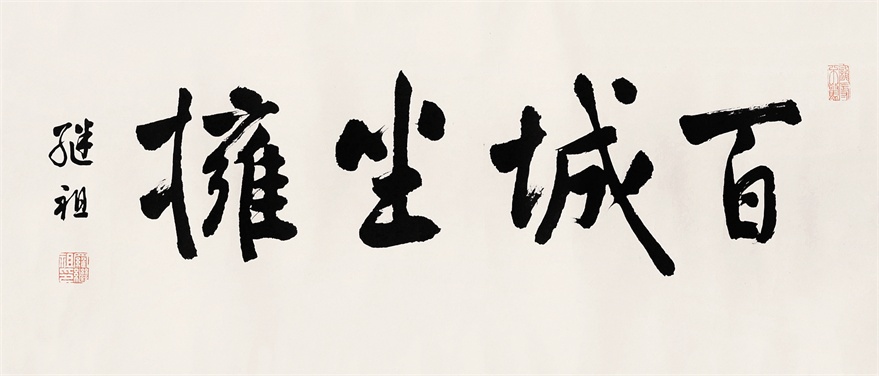 百城坐擁
继祖